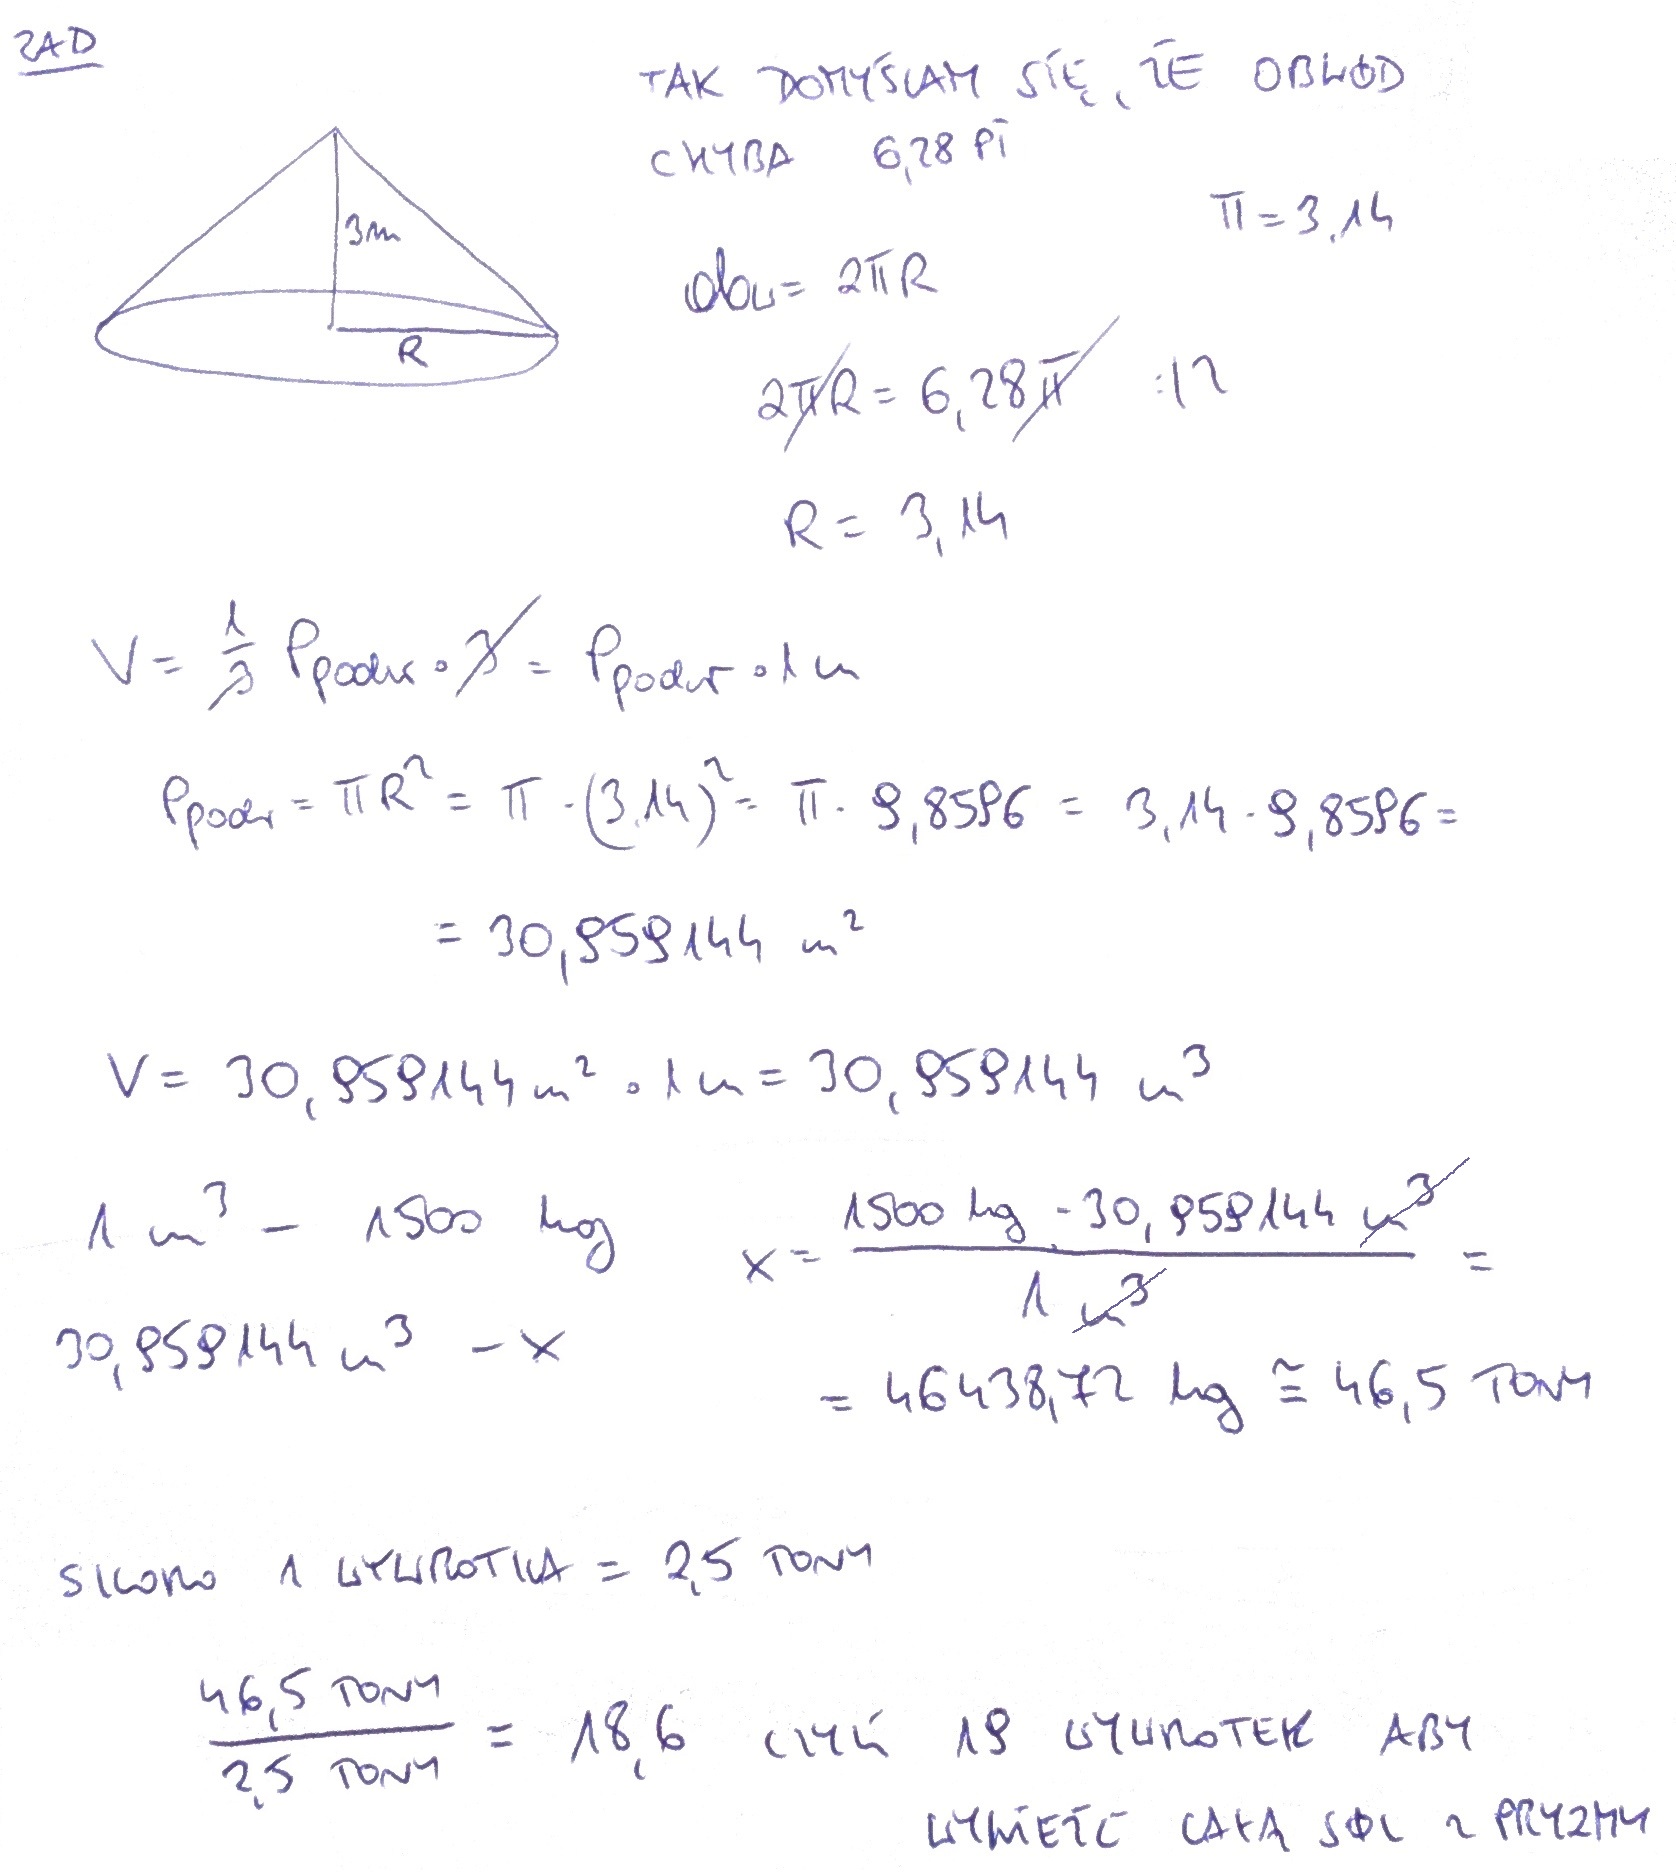 ZAD
TAK DOMYŚLAM SIĘ, ŻE OBWÓD
CHYBA 6,28 PI
π = 3,14
3m
R
obw = 2πR
2πR = 6,28π :12
R = 3,14
V = 1/3 Ppodst · 3 = Ppodst · 1 m
Ppodst = πR² = π · (3,14)² = π · 9,8596 = 3,14 · 9,8596 =
= 30,959144 m²
V = 30,959144 m² · 1 m = 30,959144 m³
1 m³ – 1500 kg
30,959144 m³ – x
x = 1500 kg · 30,959144 m³ / 1 m³ =
= 46438,72 kg ≅ 46,5 TONY
SKORO 1 WYWROTKA = 2,5 TONY
46,5 TONY / 2,5 TONY = 18,6 CZYLI 19 WYWROTEK ABY
WYWIEŹĆ CAŁĄ SÓL Z PRYZMY